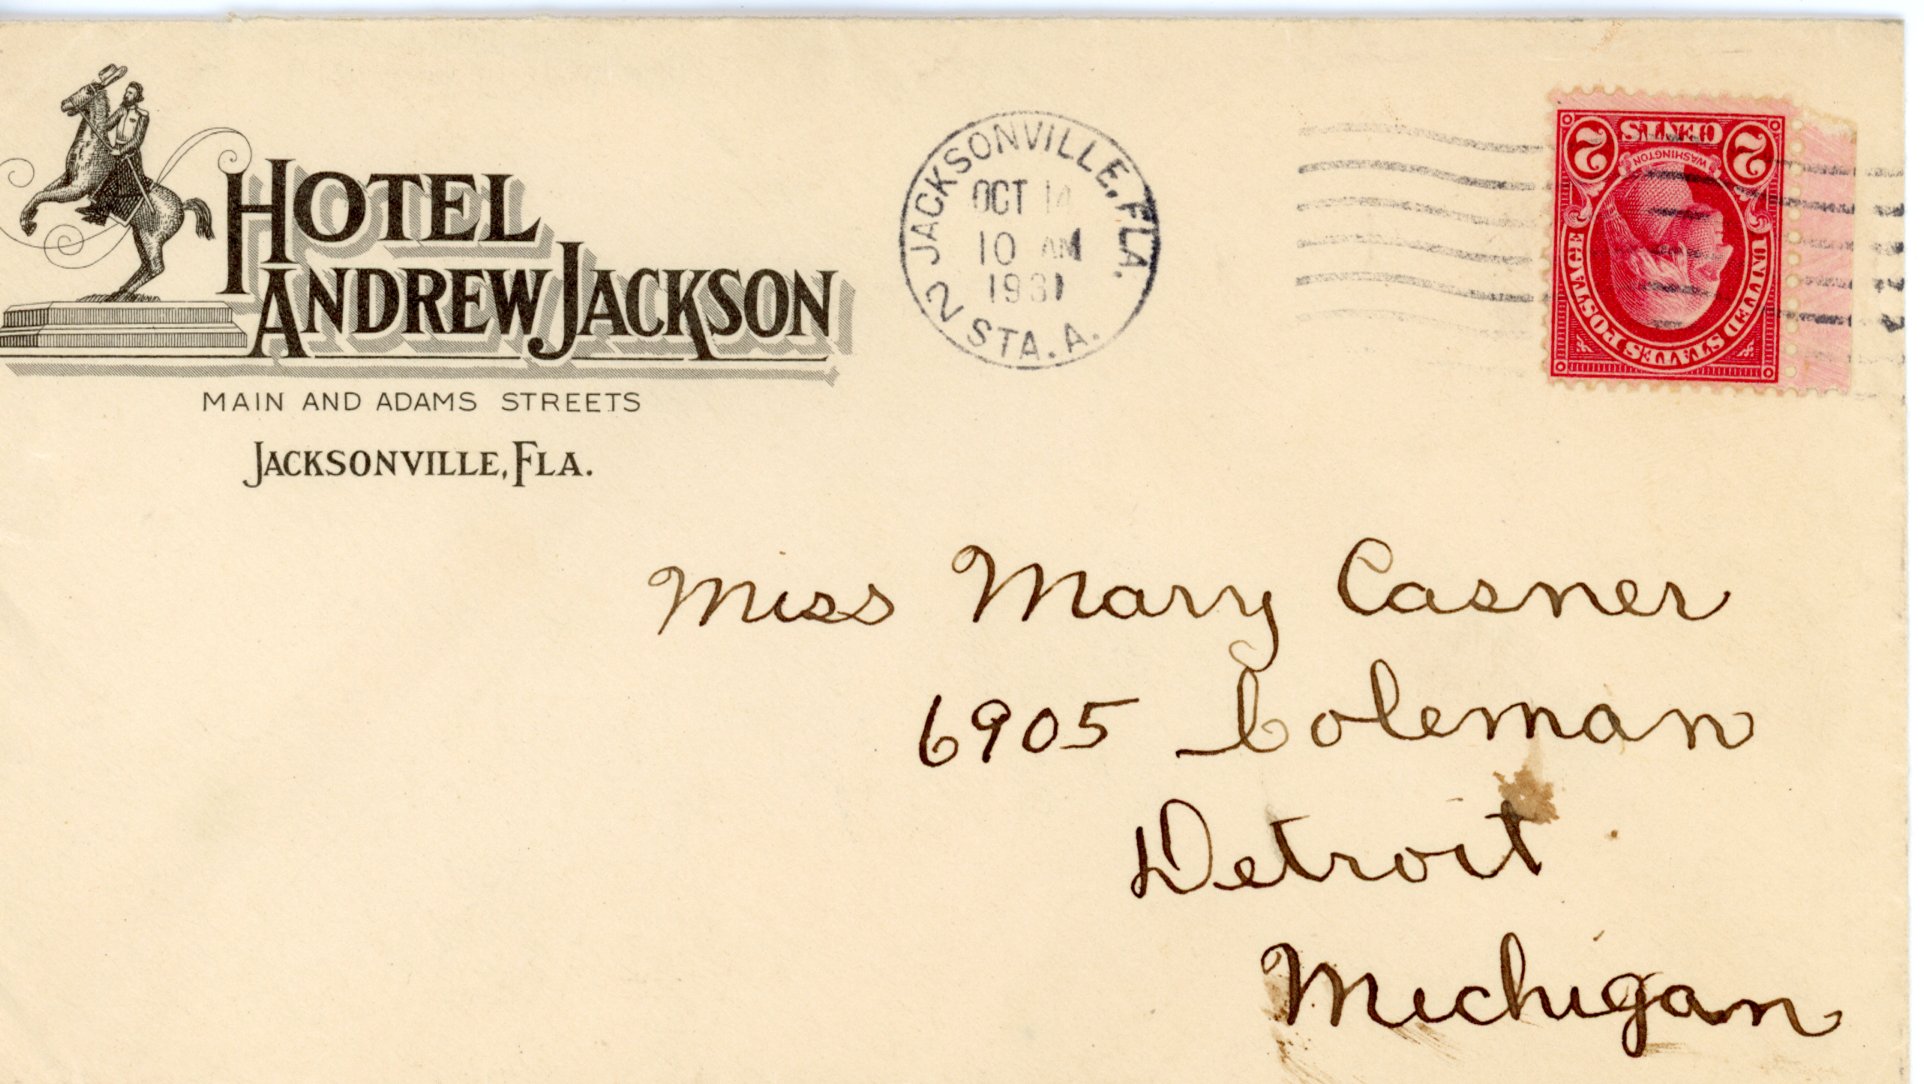 HOTEL
ANDREW JACKSON
MAIN AND ADAMS STREETS
JACKSONVILLE, FLA.
JACKSONVILLE, FLA.
OCT 14
10 AM
1931
2 STA. A.
UNITED STATES POSTAGE
WASHINGTON
2 CENTS 2
Miss Mary Casner
6905 Coleman
Detroit
Michigan